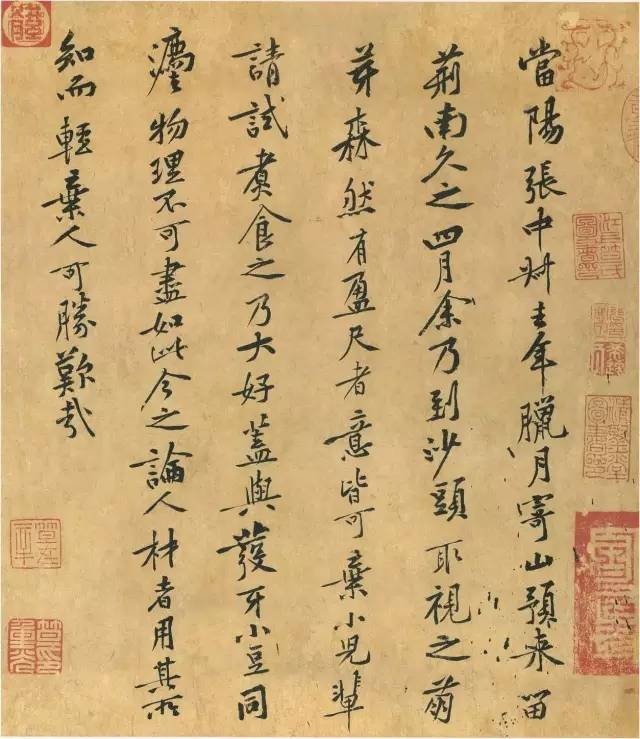 當陽張中叔去年臘月寄山預来留
荊南久之四月余乃到沙頭取視之萌
芽森然有盈尺者意皆可棄小兒輩
請試煑食之乃大好蓋與發牙小豆同
灋物理不可盡如此今之論人材者用其所
知而輕棄人可勝歎哉